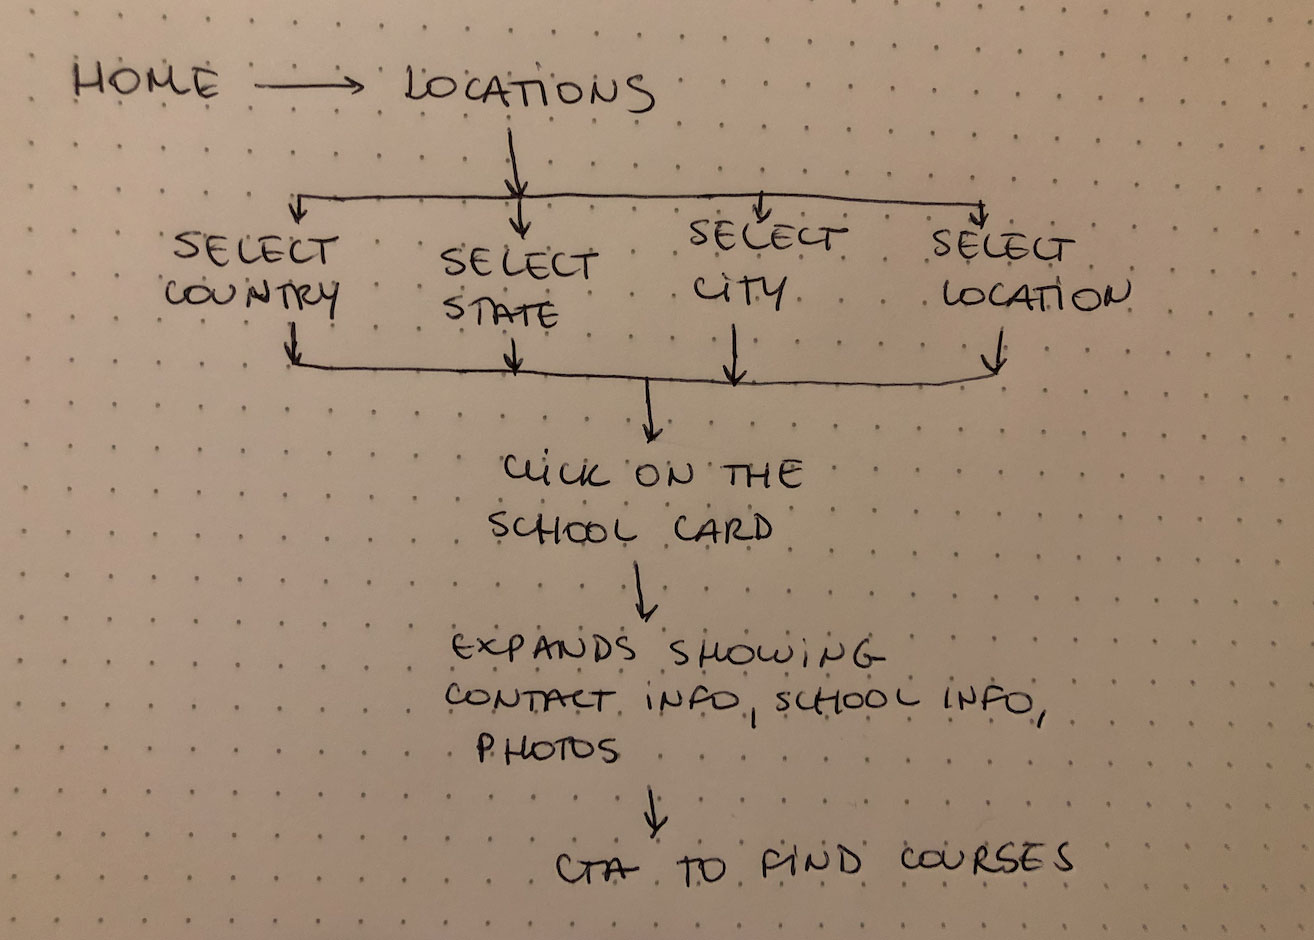 HOME → LOCATIONS
SELECT COUNTRY
SELECT STATE
SELECT CITY
SELECT LOCATION
CLICK ON THE
SCHOOL CARD
EXPANDS SHOWING
CONTACT INFO, SCHOOL INFO,
PHOTOS
CTA TO FIND COURSES